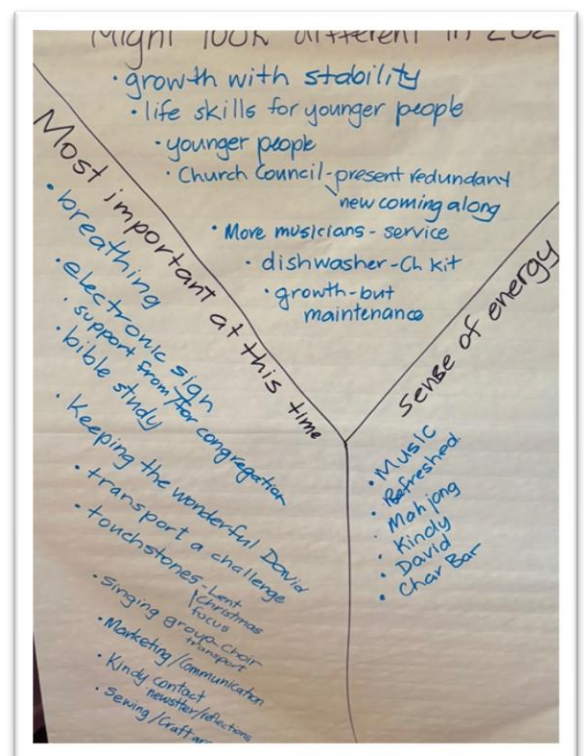 Might look different in 202
• growth with stability
• life skills for younger people
• younger people
• Church Council - present redundant
new coming along
• More musicians - service
• dishwasher - Ch kit
• growth - but
maintenance
Most important at this time
• breathing
• electronic sign
• support from/for congregation
• bible study
• Keeping the wonderful David
• transport a challenge
• touchstones - Lent
Christmas
focus
• Singing group - choir
transport
• Marketing/Communication
• Kindy contact
newstter/reflections
• Sewing/Craft
Sense of energy
• Music
• Refreshed.
• Mah jong
• Kindy
• David
• Char Bar